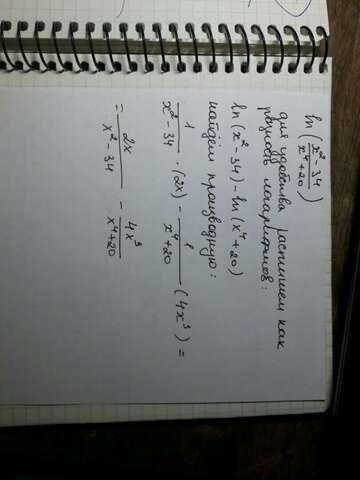 ln(x²-34/x⁴+20)
для удобства распишем как
разность логарифмов:
ln(x²-34)-ln(x⁴+20)
найдём производную:
1/x²-34 · (2x) - 1/x⁴+20 (4x³) =
= 2x/x²-34 - 4x³/x⁴+20